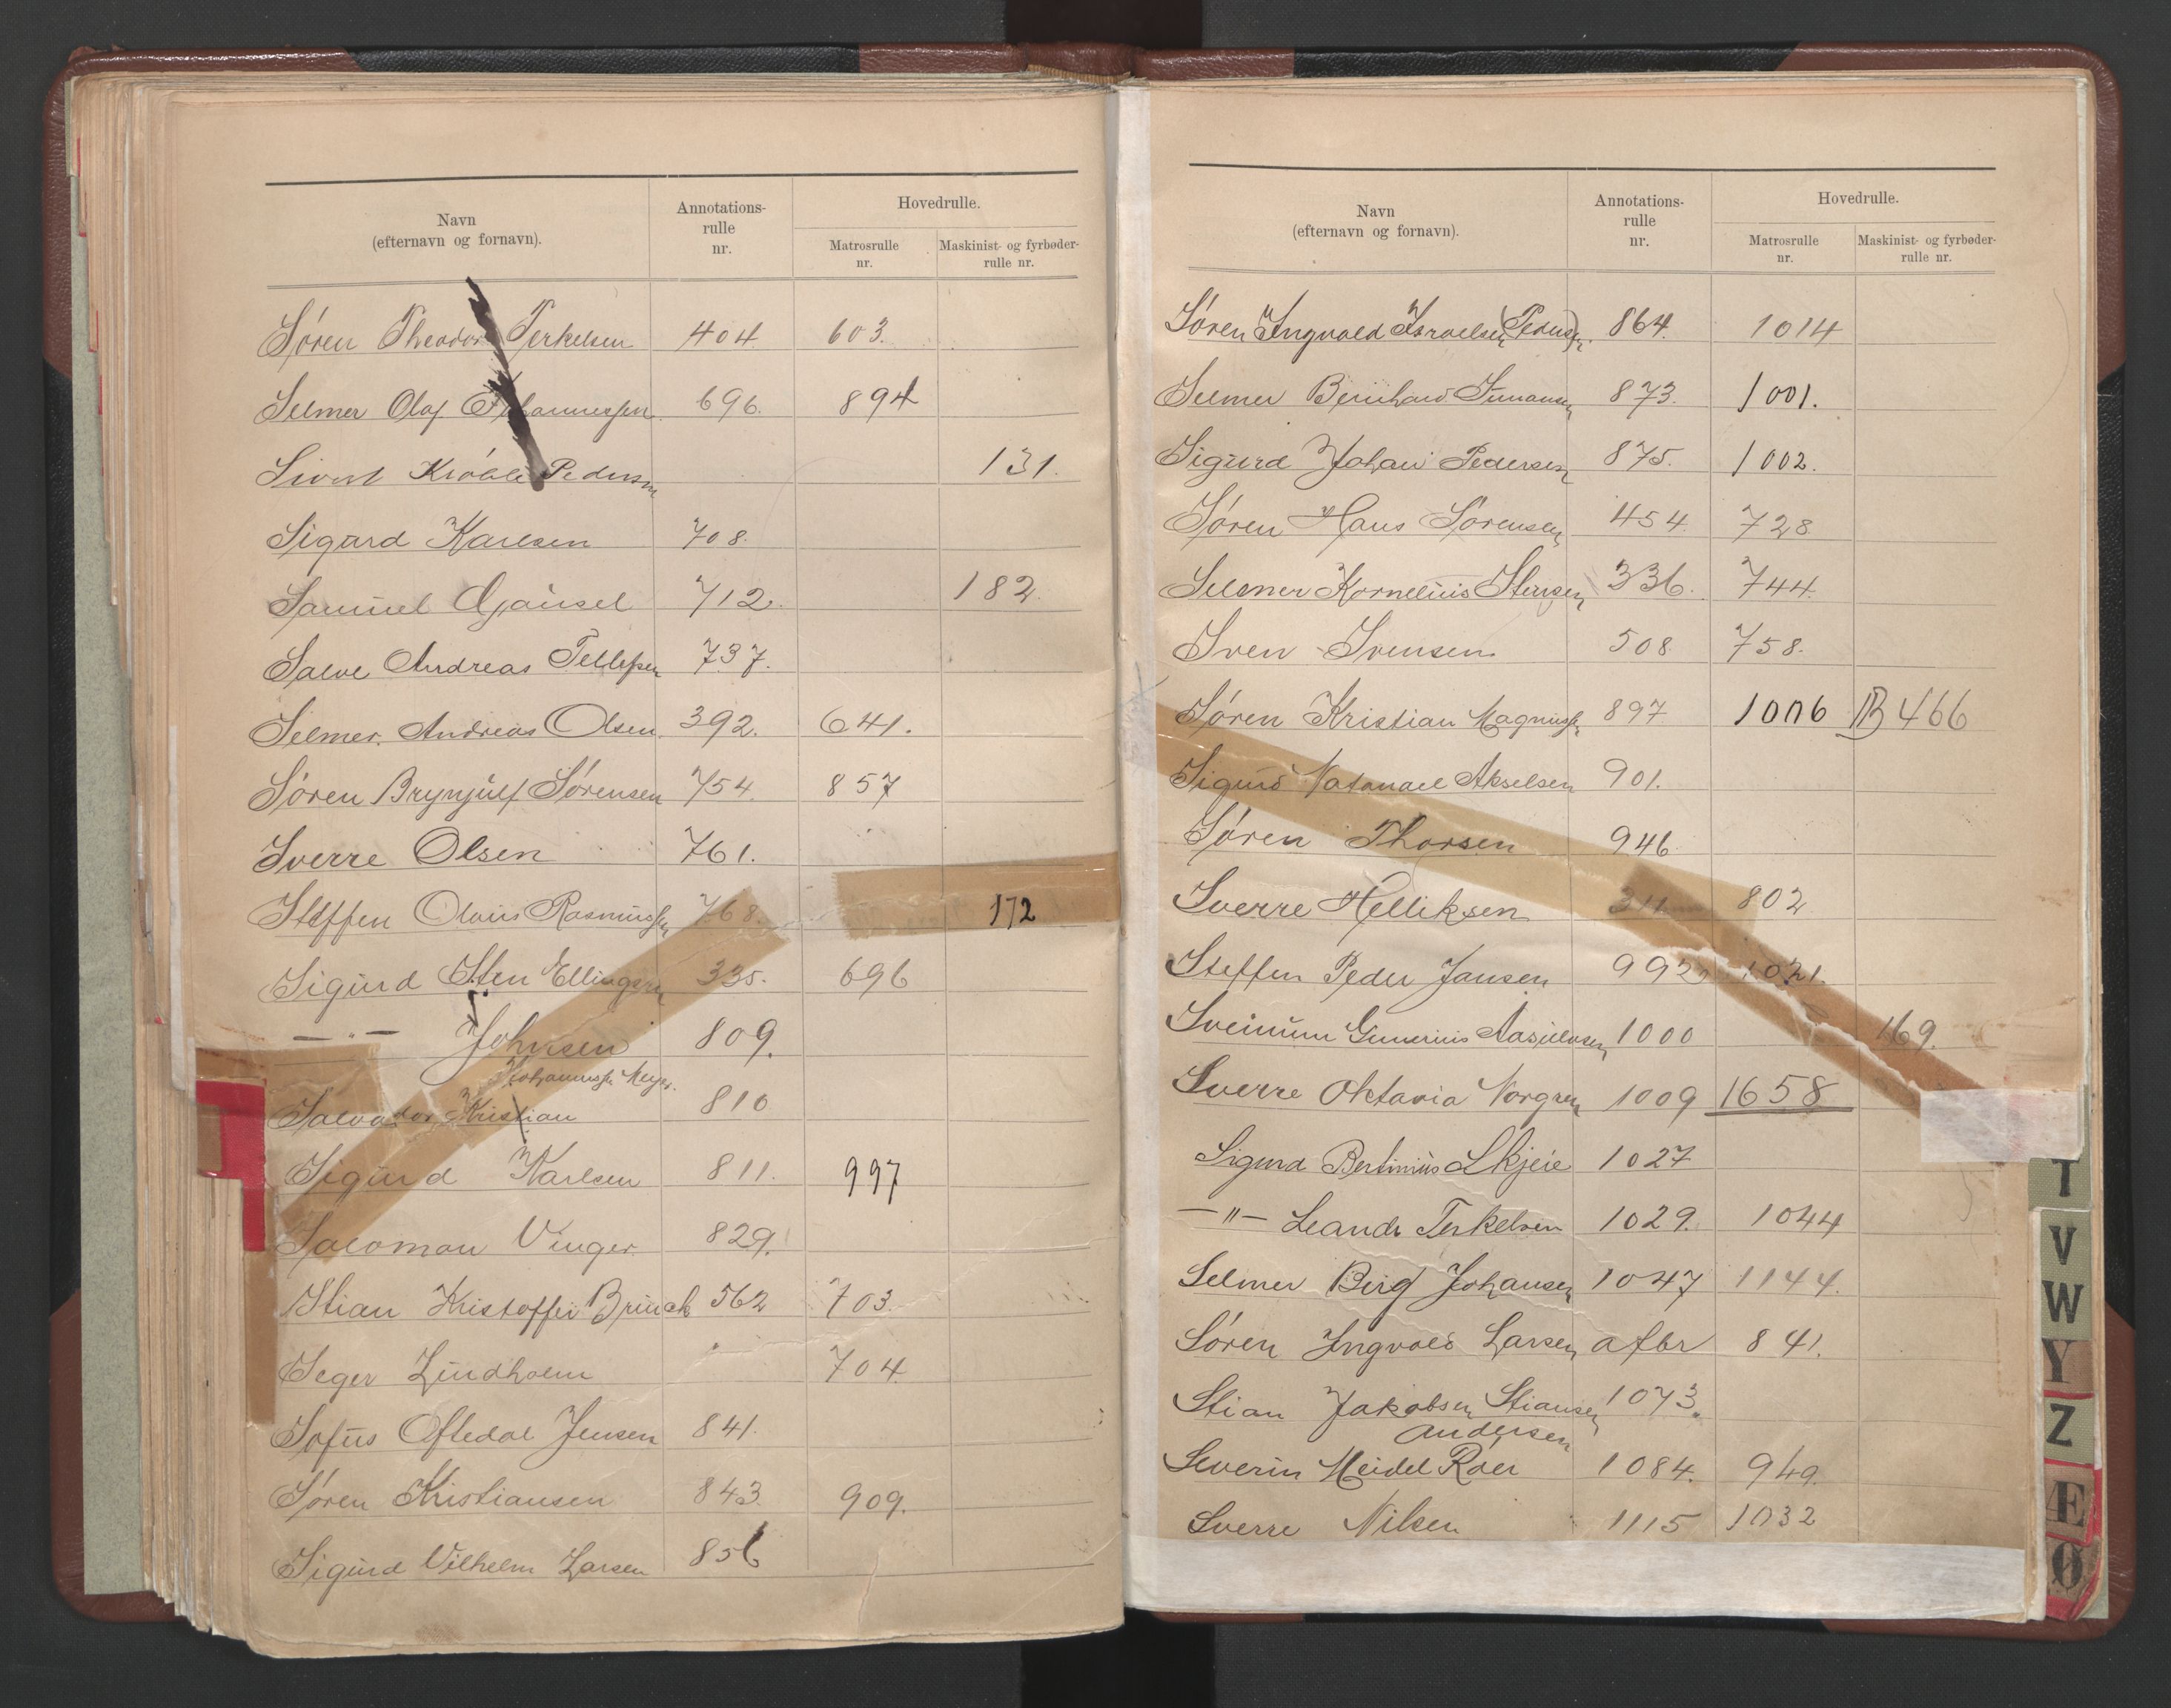 Navn (efternavn og fornavn). Annotations-rulle nr. Hovedrulle. Matrosrulle nr. Maskinist- og fyrbøder-rulle nr.
Søren Theodor Terkelsen 404. 603.
Selmer Olaf Johannessen 696. 894
Sivert Pedersen 131.
Sigurd Karlsen 708.
Samuel Gjausel 712. 182.
Salve Andreas Tellefsen 737.
Selmer Andreas Olsen. 392. 641.
Søren Brynjulf Sørensen 754. 857
Sverre Olsen 761.
Steffen Olaus Rasmussen 768. 172
Sigurd Sten Ellingsen 335. 696
— " — Johnsen 809.
Johanness. Meyer.
Salvador Kristian 810
Sigurd Karlsen 811. 997
Salomon Unger 829.
Stian Kristoffer Brinck 562 703.
Seger Lindholm 704.
Sofus Oftedal Jensen 841.
Søren Kristiansen 843. 909.
Sigurd Vilhelm Larsen 856
Navn (efternavn og fornavn). Annotations-rulle nr. Hovedrulle. Matrosrulle nr. Maskinist- og fyrbøder-rulle nr.
Søren Ingvald Israelsen (Pedersen). 864. 1014
Selmer Bernhard 873. 1001.
Sigurd Johan Pedersen 875. 1002.
Søren Hans Sørensen 454. 728
Selmer Kornelius Stensen 336. 744.
Sven Svensen 508. 758.
Søren Kristian Magnuss. 897 1006 B 466
Sigurd Natanael Akselsen 901.
Søren Thorsen 946
Sverre Helliksen 311 802
Steffen Peder Jansen 992 1021.
Gunerius 1000 169.
Sverre Oktavia Norgren 1009 1658
Sigurd Bertinius Skjeie 1027
— " — Leander Terkelsen 1029. 1044
Selmer Birg Johansen 1047 1144.
Søren Ingvald Larsen afbr 841.
Stian Jakobsen Stiansen 1073.
Andersen
Severin Heidel Röer 1084. 949.
Sverre Nilsen 1115 1032
T
V
W
Y
Z
Æ
Ø